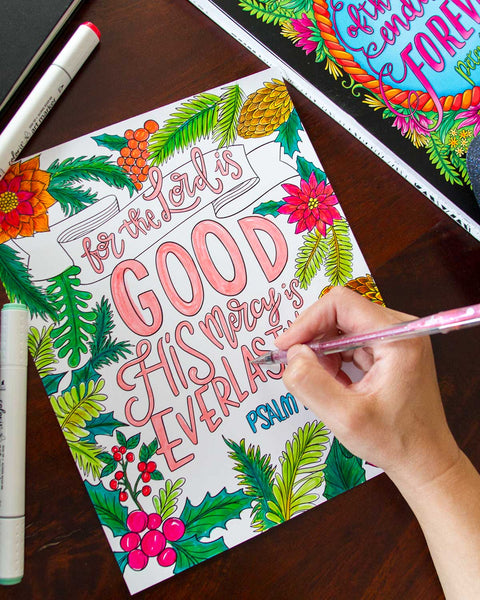 for the Lord is
GOOD
His Mercy is
EVERLAST
PSALM 1
of
endu
FOREV
psalm